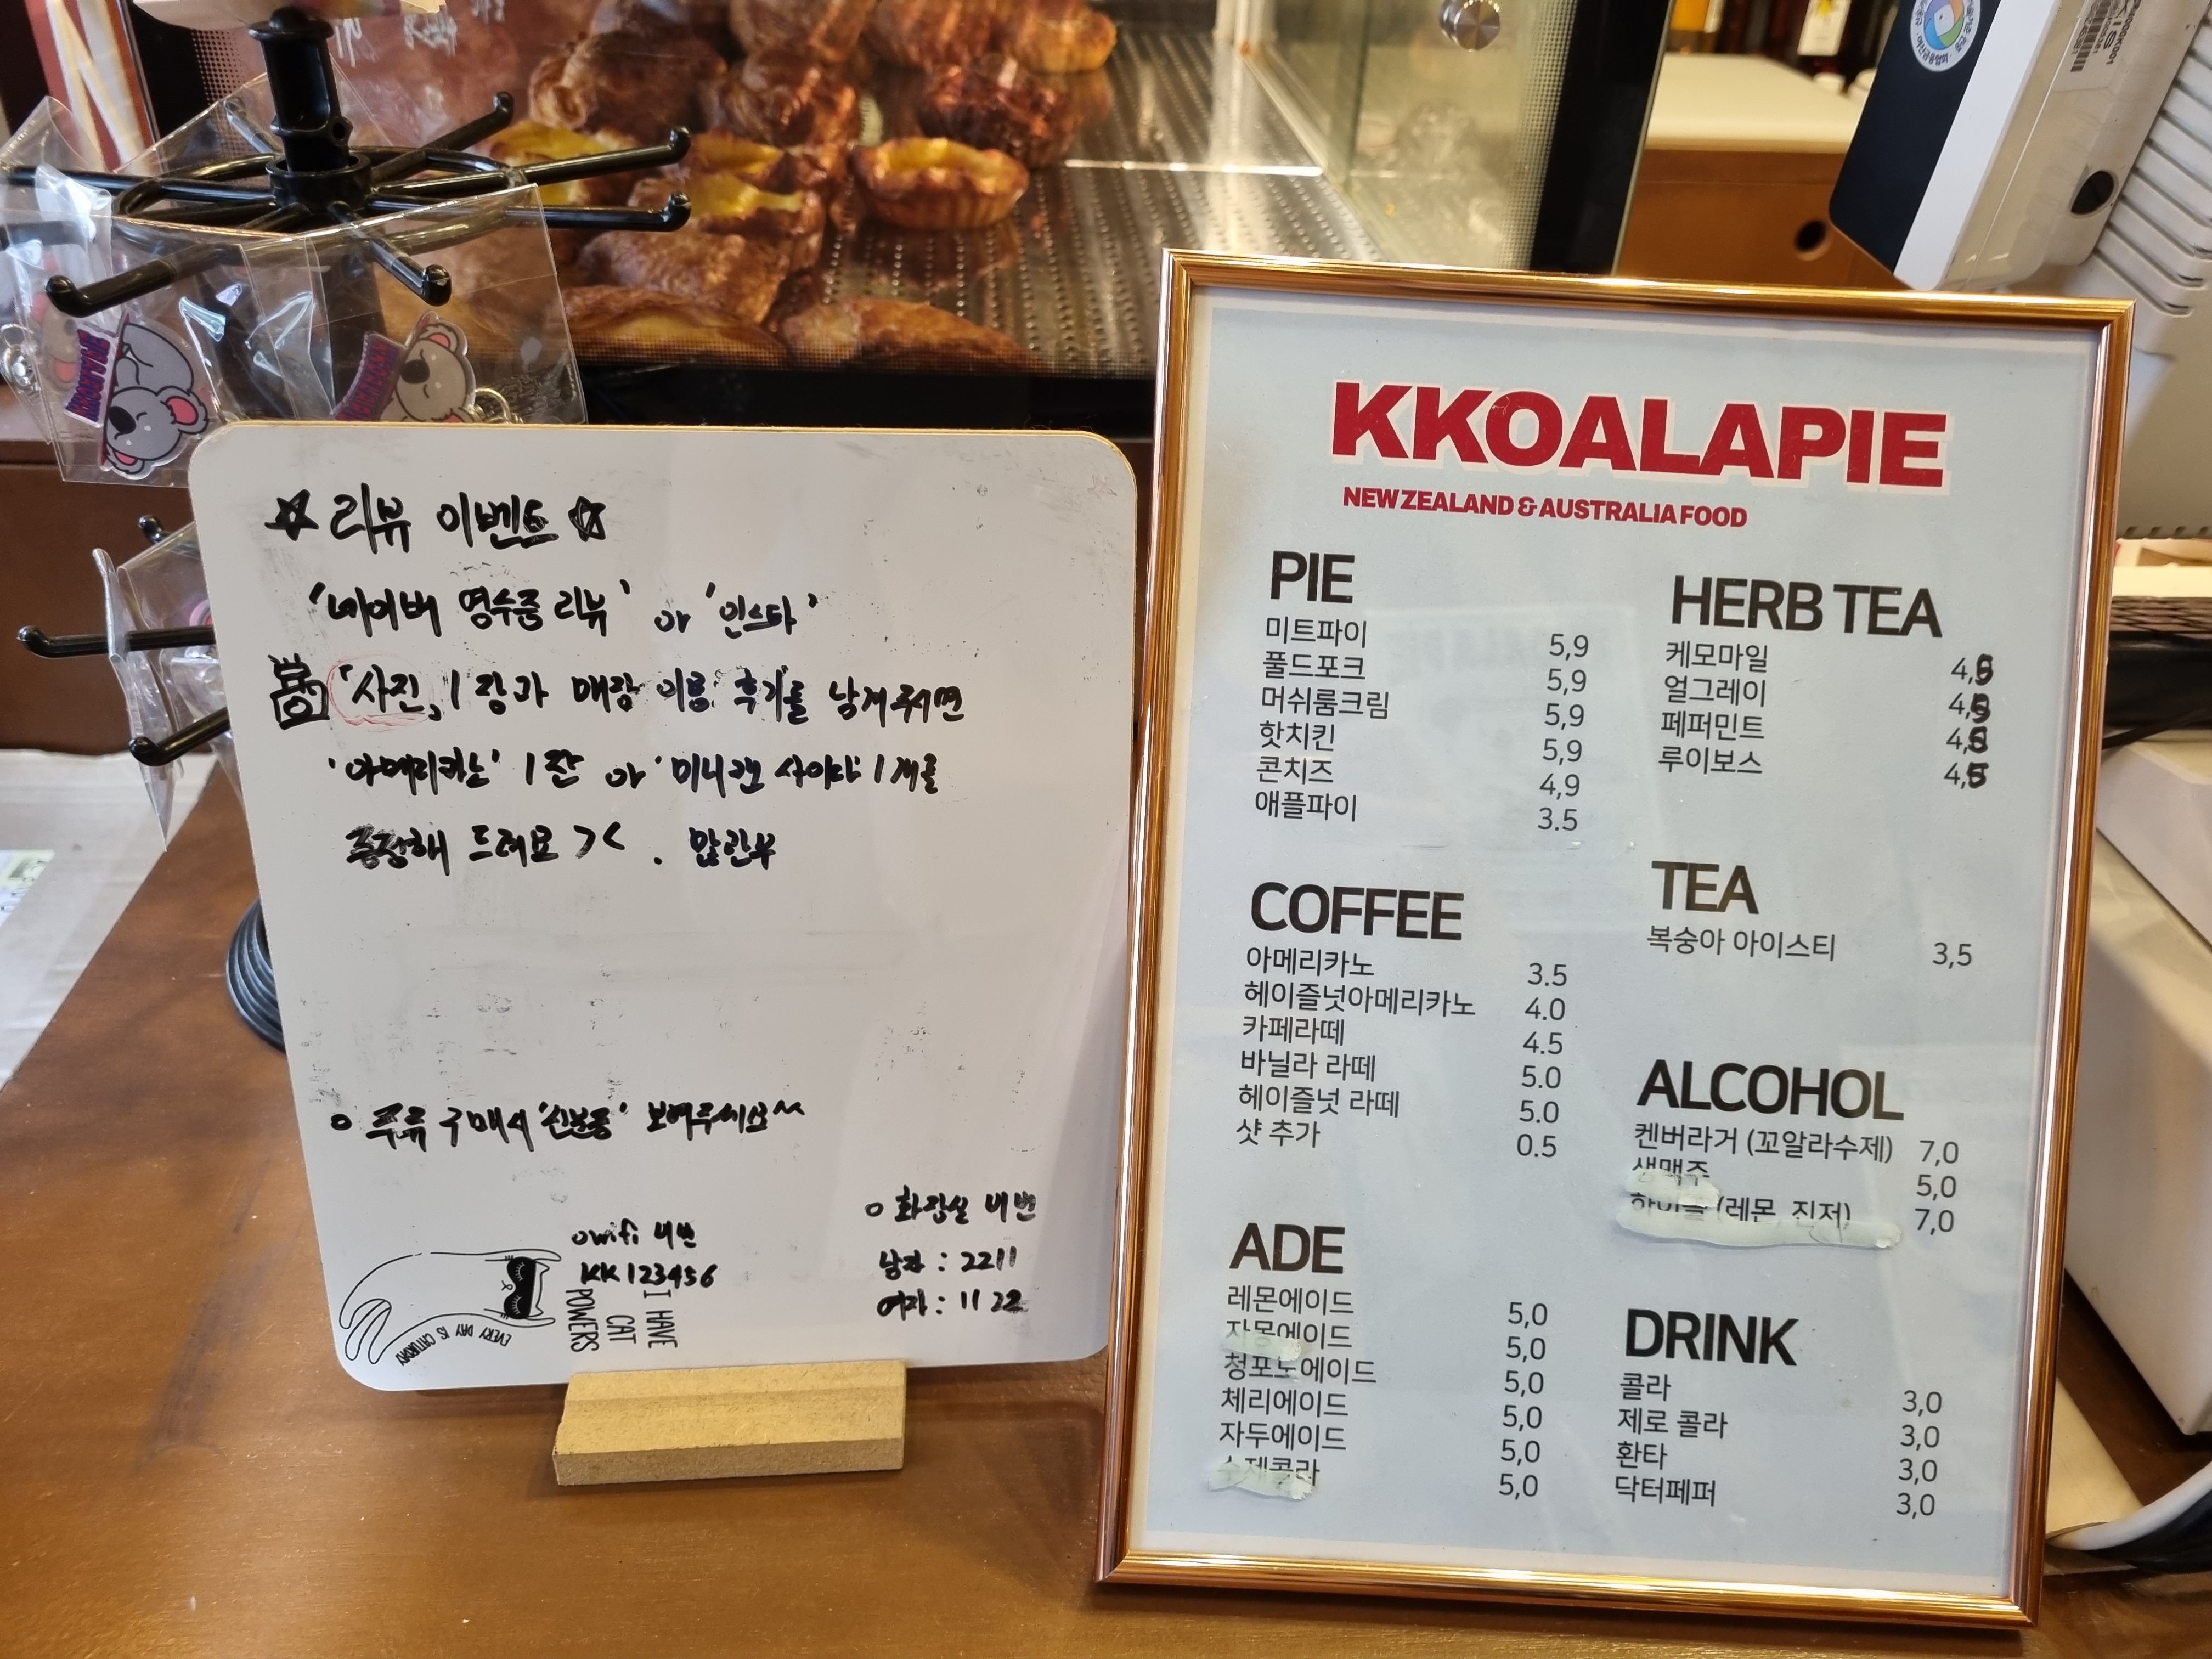 ☆ 리뷰 이벤트 ☆
'네이버 영수증 리뷰' or '인스타'
「사진」 1장과 매장 이용 후기를 남겨주시면
'아메리카노' 1잔 or '미니캔 사이다' 1개를
증정해 드려요 ><.
o 주류 구매시 '신분증' 보여주세요^^
o wifi 비번
KK123456
o 화장실 비번
남자 : 2211
여자 : 1122
I HAVE
CAT
POWERS
EVERY DAY IS CATURDAY
KKOALAPIE
NEW ZEALAND & AUSTRALIA FOOD
PIE
미트파이 5,9
풀드포크 5,9
머쉬룸크림 5,9
핫치킨 5,9
콘치즈 4,9
애플파이 3.5
COFFEE
아메리카노 3.5
헤이즐넛아메리카노 4.0
카페라떼 4.5
바닐라 라떼 5.0
헤이즐넛 라떼 5.0
샷 추가 0.5
ADE
레몬에이드 5,0
자몽에이드 5,0
청포도에이드 5,0
체리에이드 5,0
자두에이드 5,0
수제콜라 5,0
HERB TEA
케모마일 4,5
얼그레이 4,5
페퍼민트 4,5
루이보스 4,5
TEA
복숭아 아이스티 3,5
ALCOHOL
켄버라거 (꼬알라수제) 7,0
생맥주 5,0
하이볼 (레몬, 진저) 7,0
DRINK
콜라 3,0
제로 콜라 3,0
환타 3,0
닥터페퍼 3,0